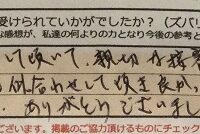 受けられていかがでしたか?(ズバリ
な感想が、私達の何よりの力となり今後の参考と
して頂いて、親切な接客
合わせして頂き良か
ありがとうございまし
ございます。掲載のご協力頂ける方にチェック